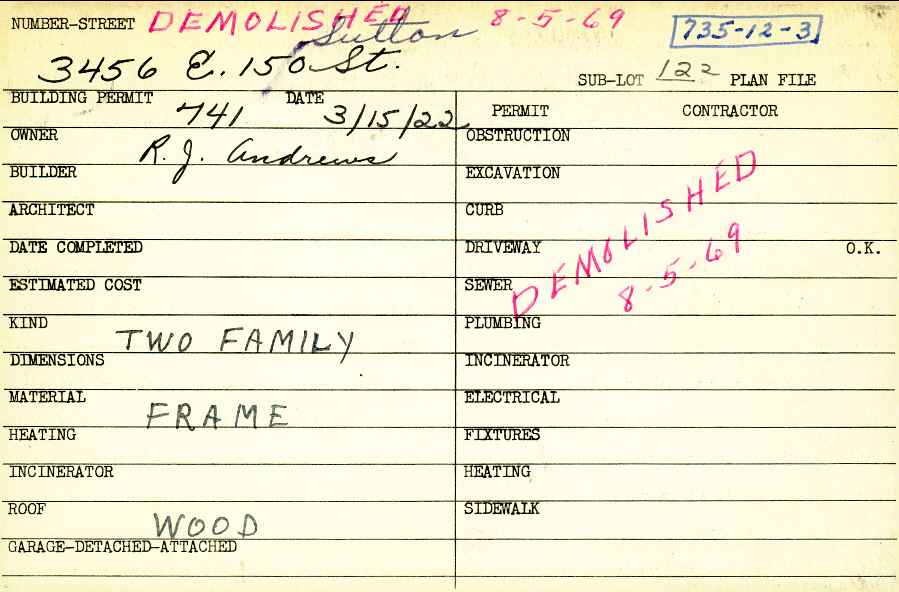 NUMBER-STREET DEMOLISHED 8-5-69 735-12-3
Sutton
3456 E. 150 St.
SUB-LOT 122 PLAN FILE
BUILDING PERMIT 741 DATE 3/15/22
PERMIT CONTRACTOR
OWNER R. J. Andrews
OBSTRUCTION
BUILDER
EXCAVATION
ARCHITECT
CURB
DATE COMPLETED
DRIVEWAY O.K.
ESTIMATED COST
SEWER
DEMOLISHED
8-5-69
KIND TWO FAMILY
PLUMBING
DIMENSIONS
INCINERATOR
MATERIAL FRAME
ELECTRICAL
HEATING
FIXTURES
INCINERATOR
HEATING
ROOF WOOD
SIDEWALK
GARAGE-DETACHED-ATTACHED